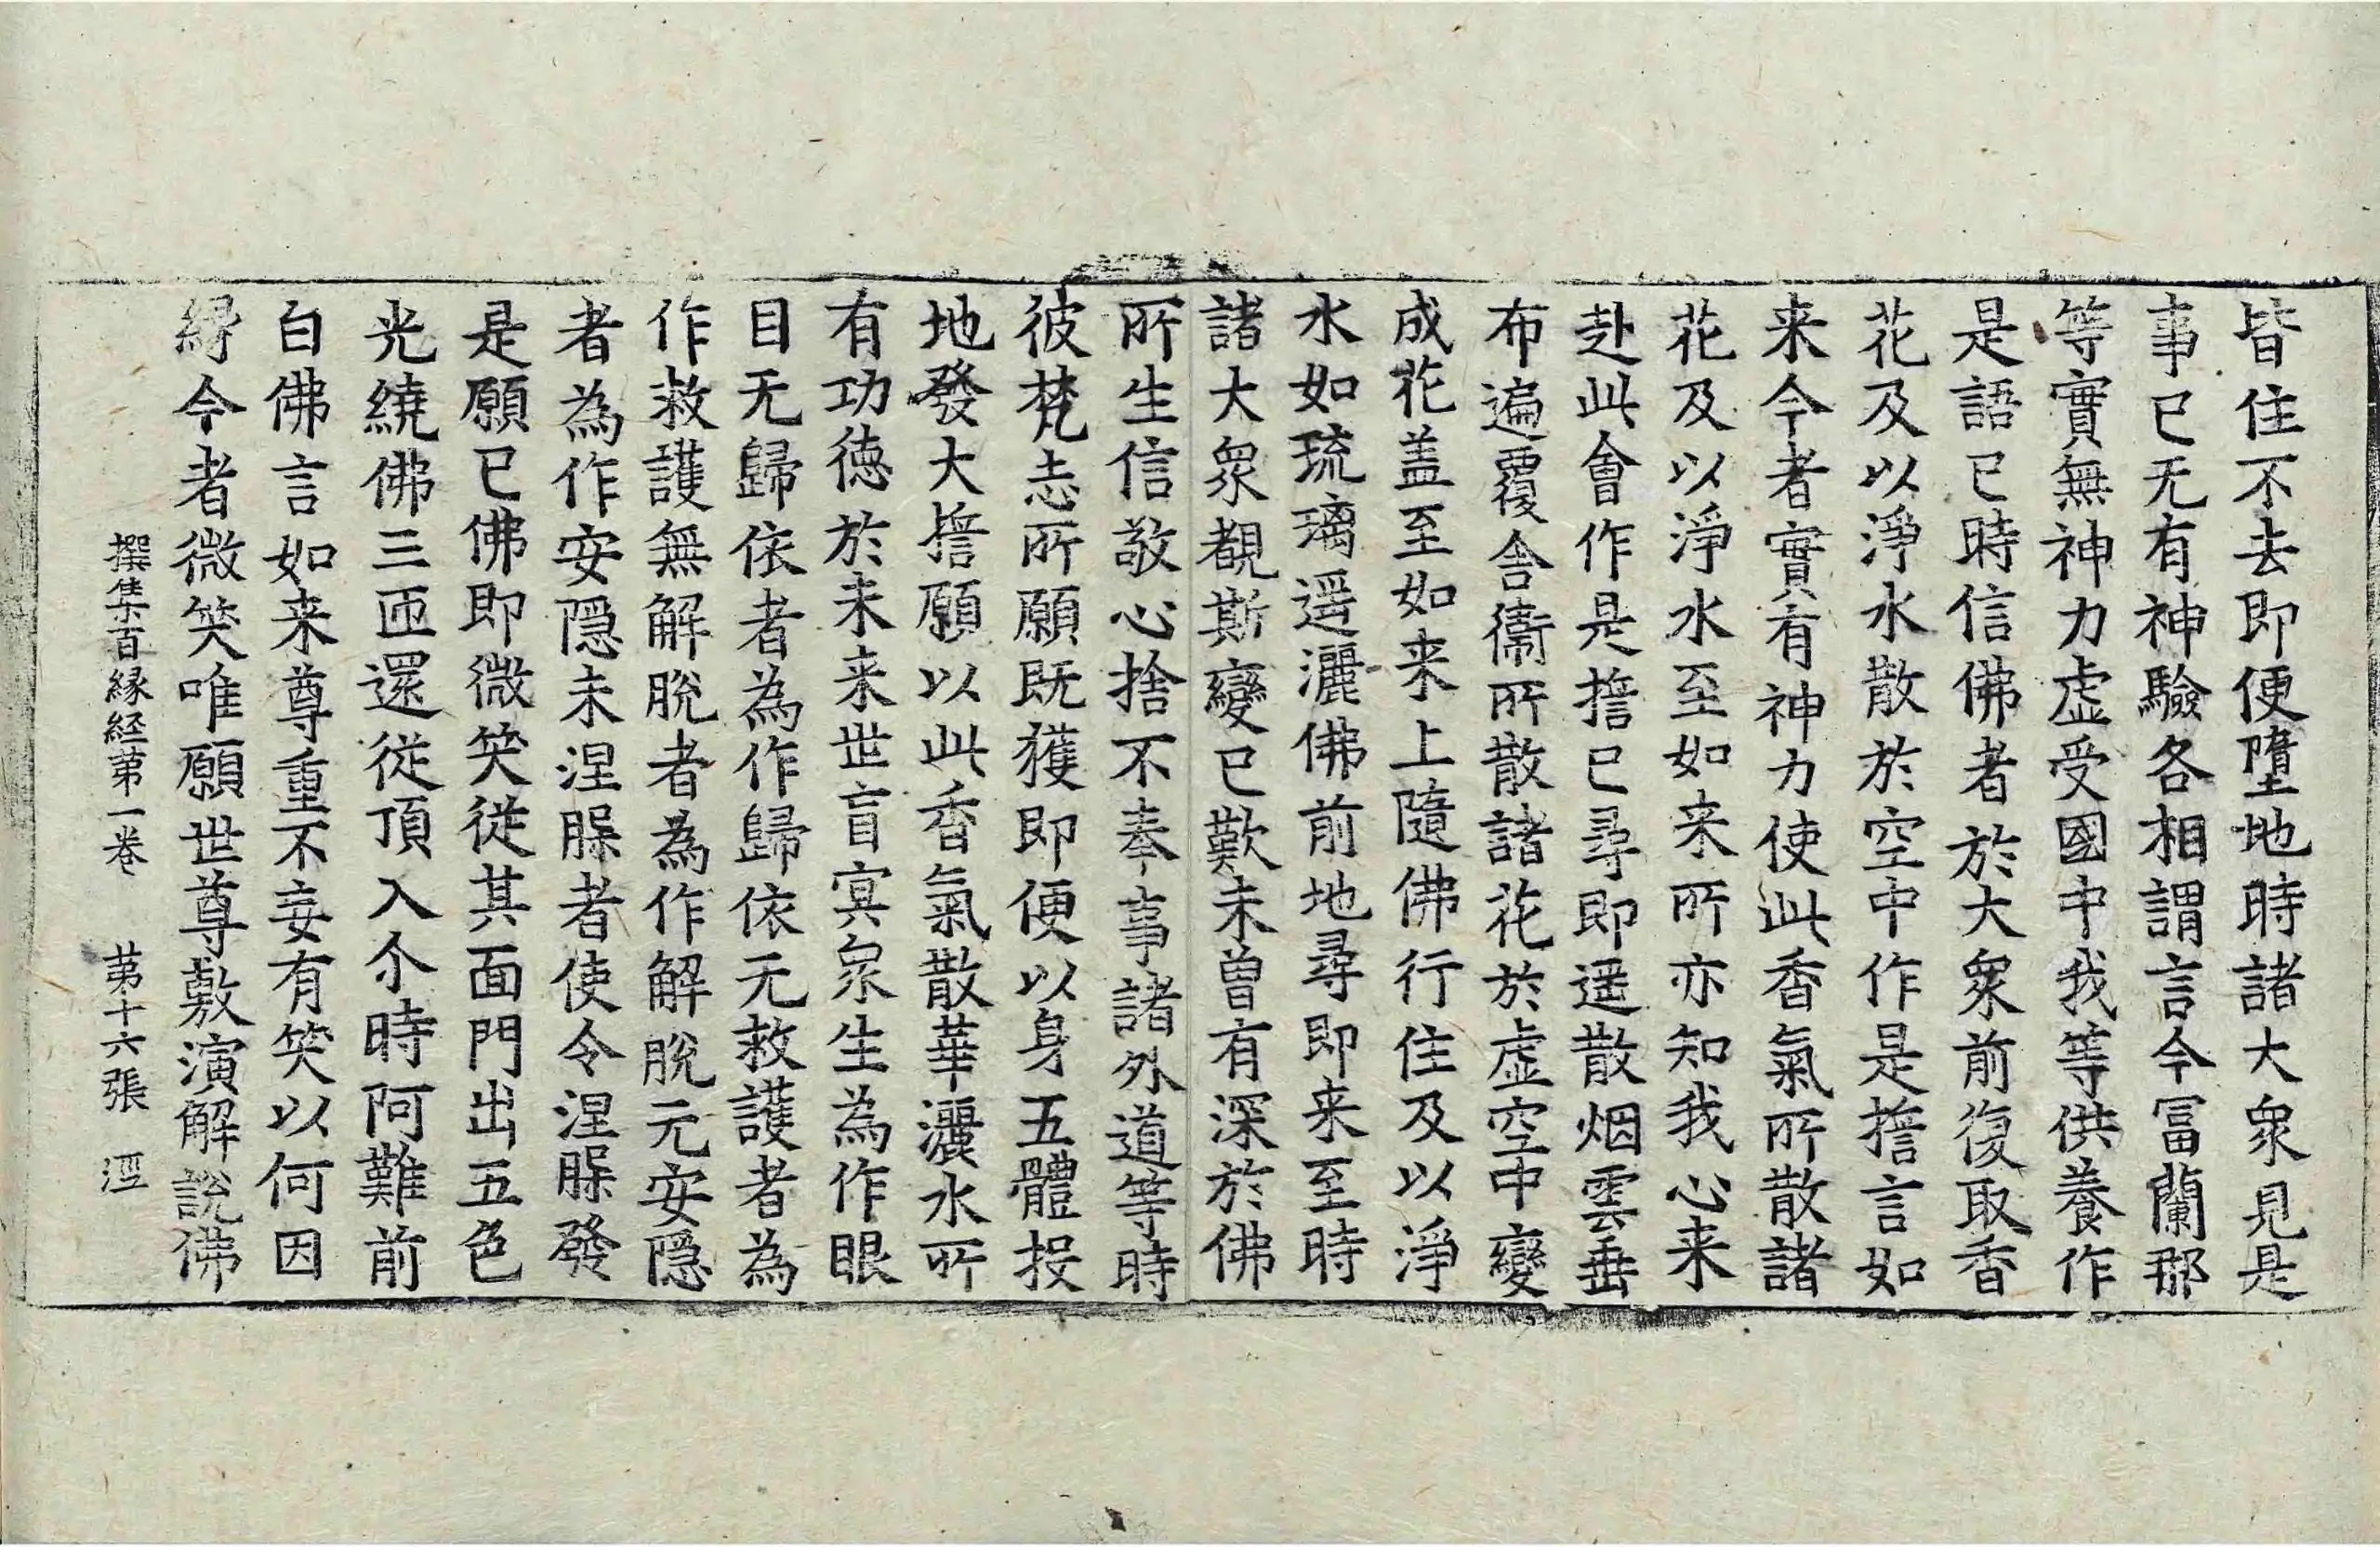 皆住不去即便墮地時諸大衆見是
事已无有神驗各相謂言今冨蘭那
等實無神力虚受國中我等供養作
是語已時信佛者於大衆前復取香
花及以淨水散於空中作是擔言如
来今者實有神力使此香氣所散諸
花及以淨水至如来所亦知我心来
赴此會作是擔已尋即遥散烟雲垂
布遍覆舎衛所散諸花於虚空中變
成花盖至如来上隨佛行住及以淨
水如琉璃遥灑佛前地尋即来至時
諸大衆覩斯變已歎未曽有深於佛
所生信敬心捨不奉事諸外道等時
彼梵志所願既獲即便以身五體投
地發大擔願以此香氣散華灑水所
有功徳於未来世盲冥衆生為作眼
目无歸依者為作歸依无救護者為
作救護無解脫者為作解脫无安隠
者為作安隠未涅槃者使令涅槃發
是願已佛即微笑從其面門出五色
光繞佛三匝還從頂入尒時阿難前
白佛言如来尊重不妄有笑以何因
縁今者微笑唯願世尊敷演解說佛
撰集百縁経苐一卷　苐十六張　洭